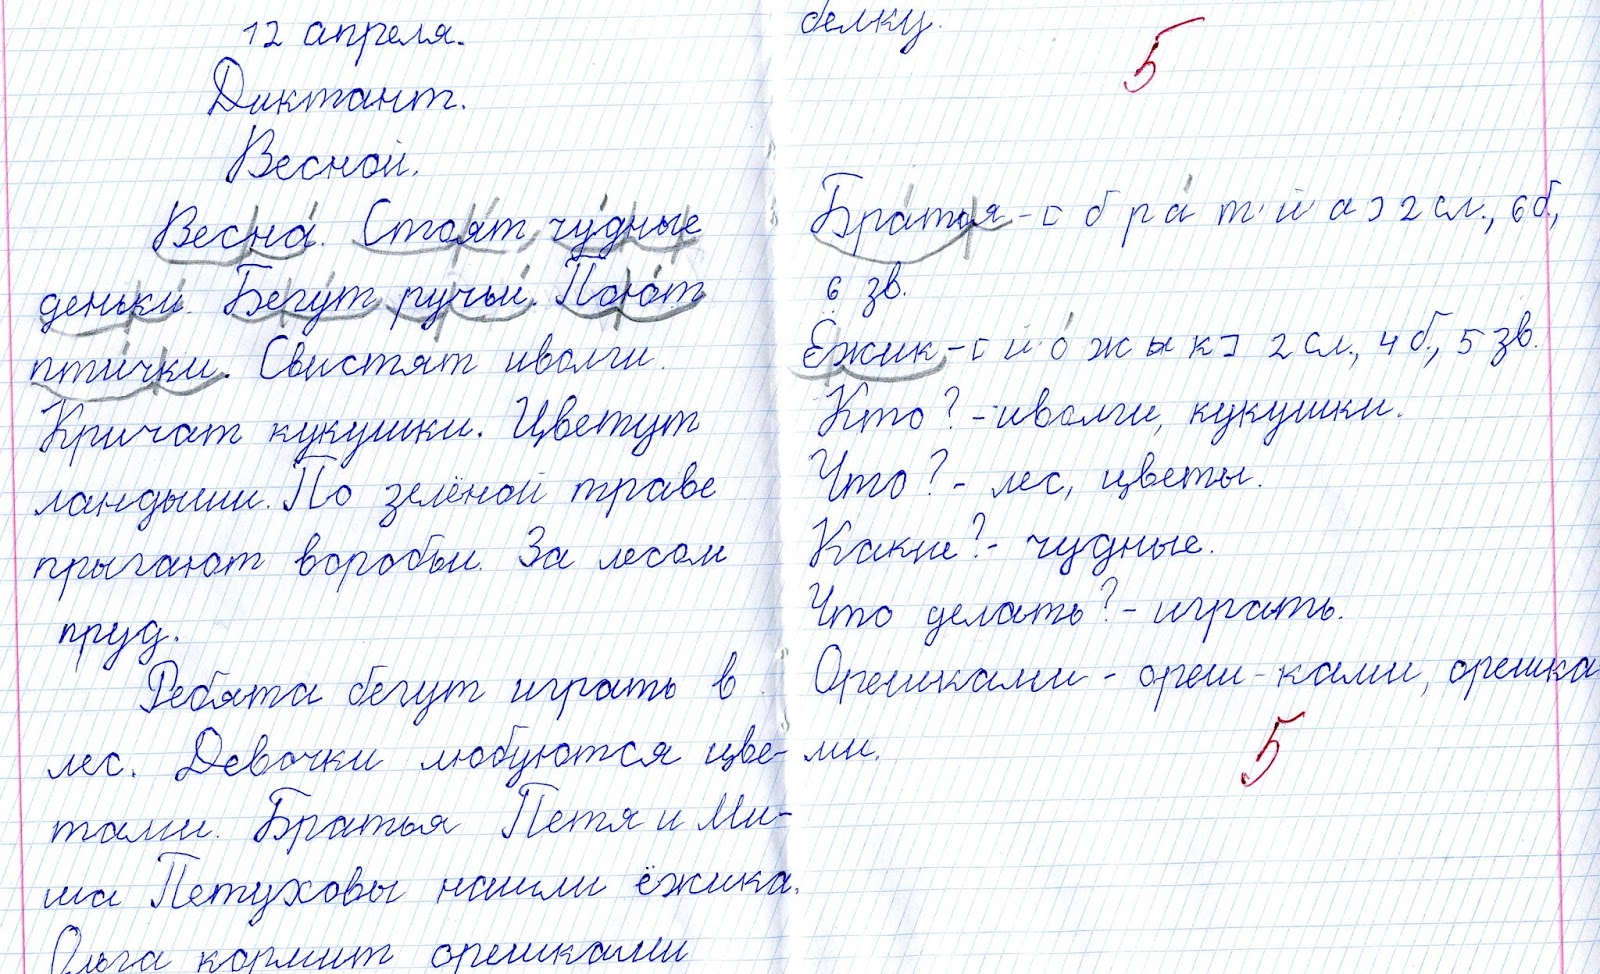 12 апреля.
Диктант.
Весной.
Весна́. Стоя́т чу́дные
деньки́. Бегу́т ручьи́. Пою́т
пти́чки. Свистят иволги.
Кричат кукушки. Цветут
ландыши. По зелёной траве
прыгают воробьи. За лесом
пруд.
Ребята бегут играть в
лес. Девочки любуются цве-
тами. Братья Петя и Ми-
ша Петуховы нашли ёжика.
Ольга кормит орешками
белку.
5
Бра́тья - [б р а́ т' й' а] 2 сл., 6 б.,
6 зв.
Ёжик - [й' о́ ж ы к] 2 сл., 4 б., 5 зв.
Кто? - иволги, кукушки.
Что? - лес, цветы.
Какие? - чудные.
Что делать? - играть.
Орешками - ореш-ками, орешка-
ми.
5